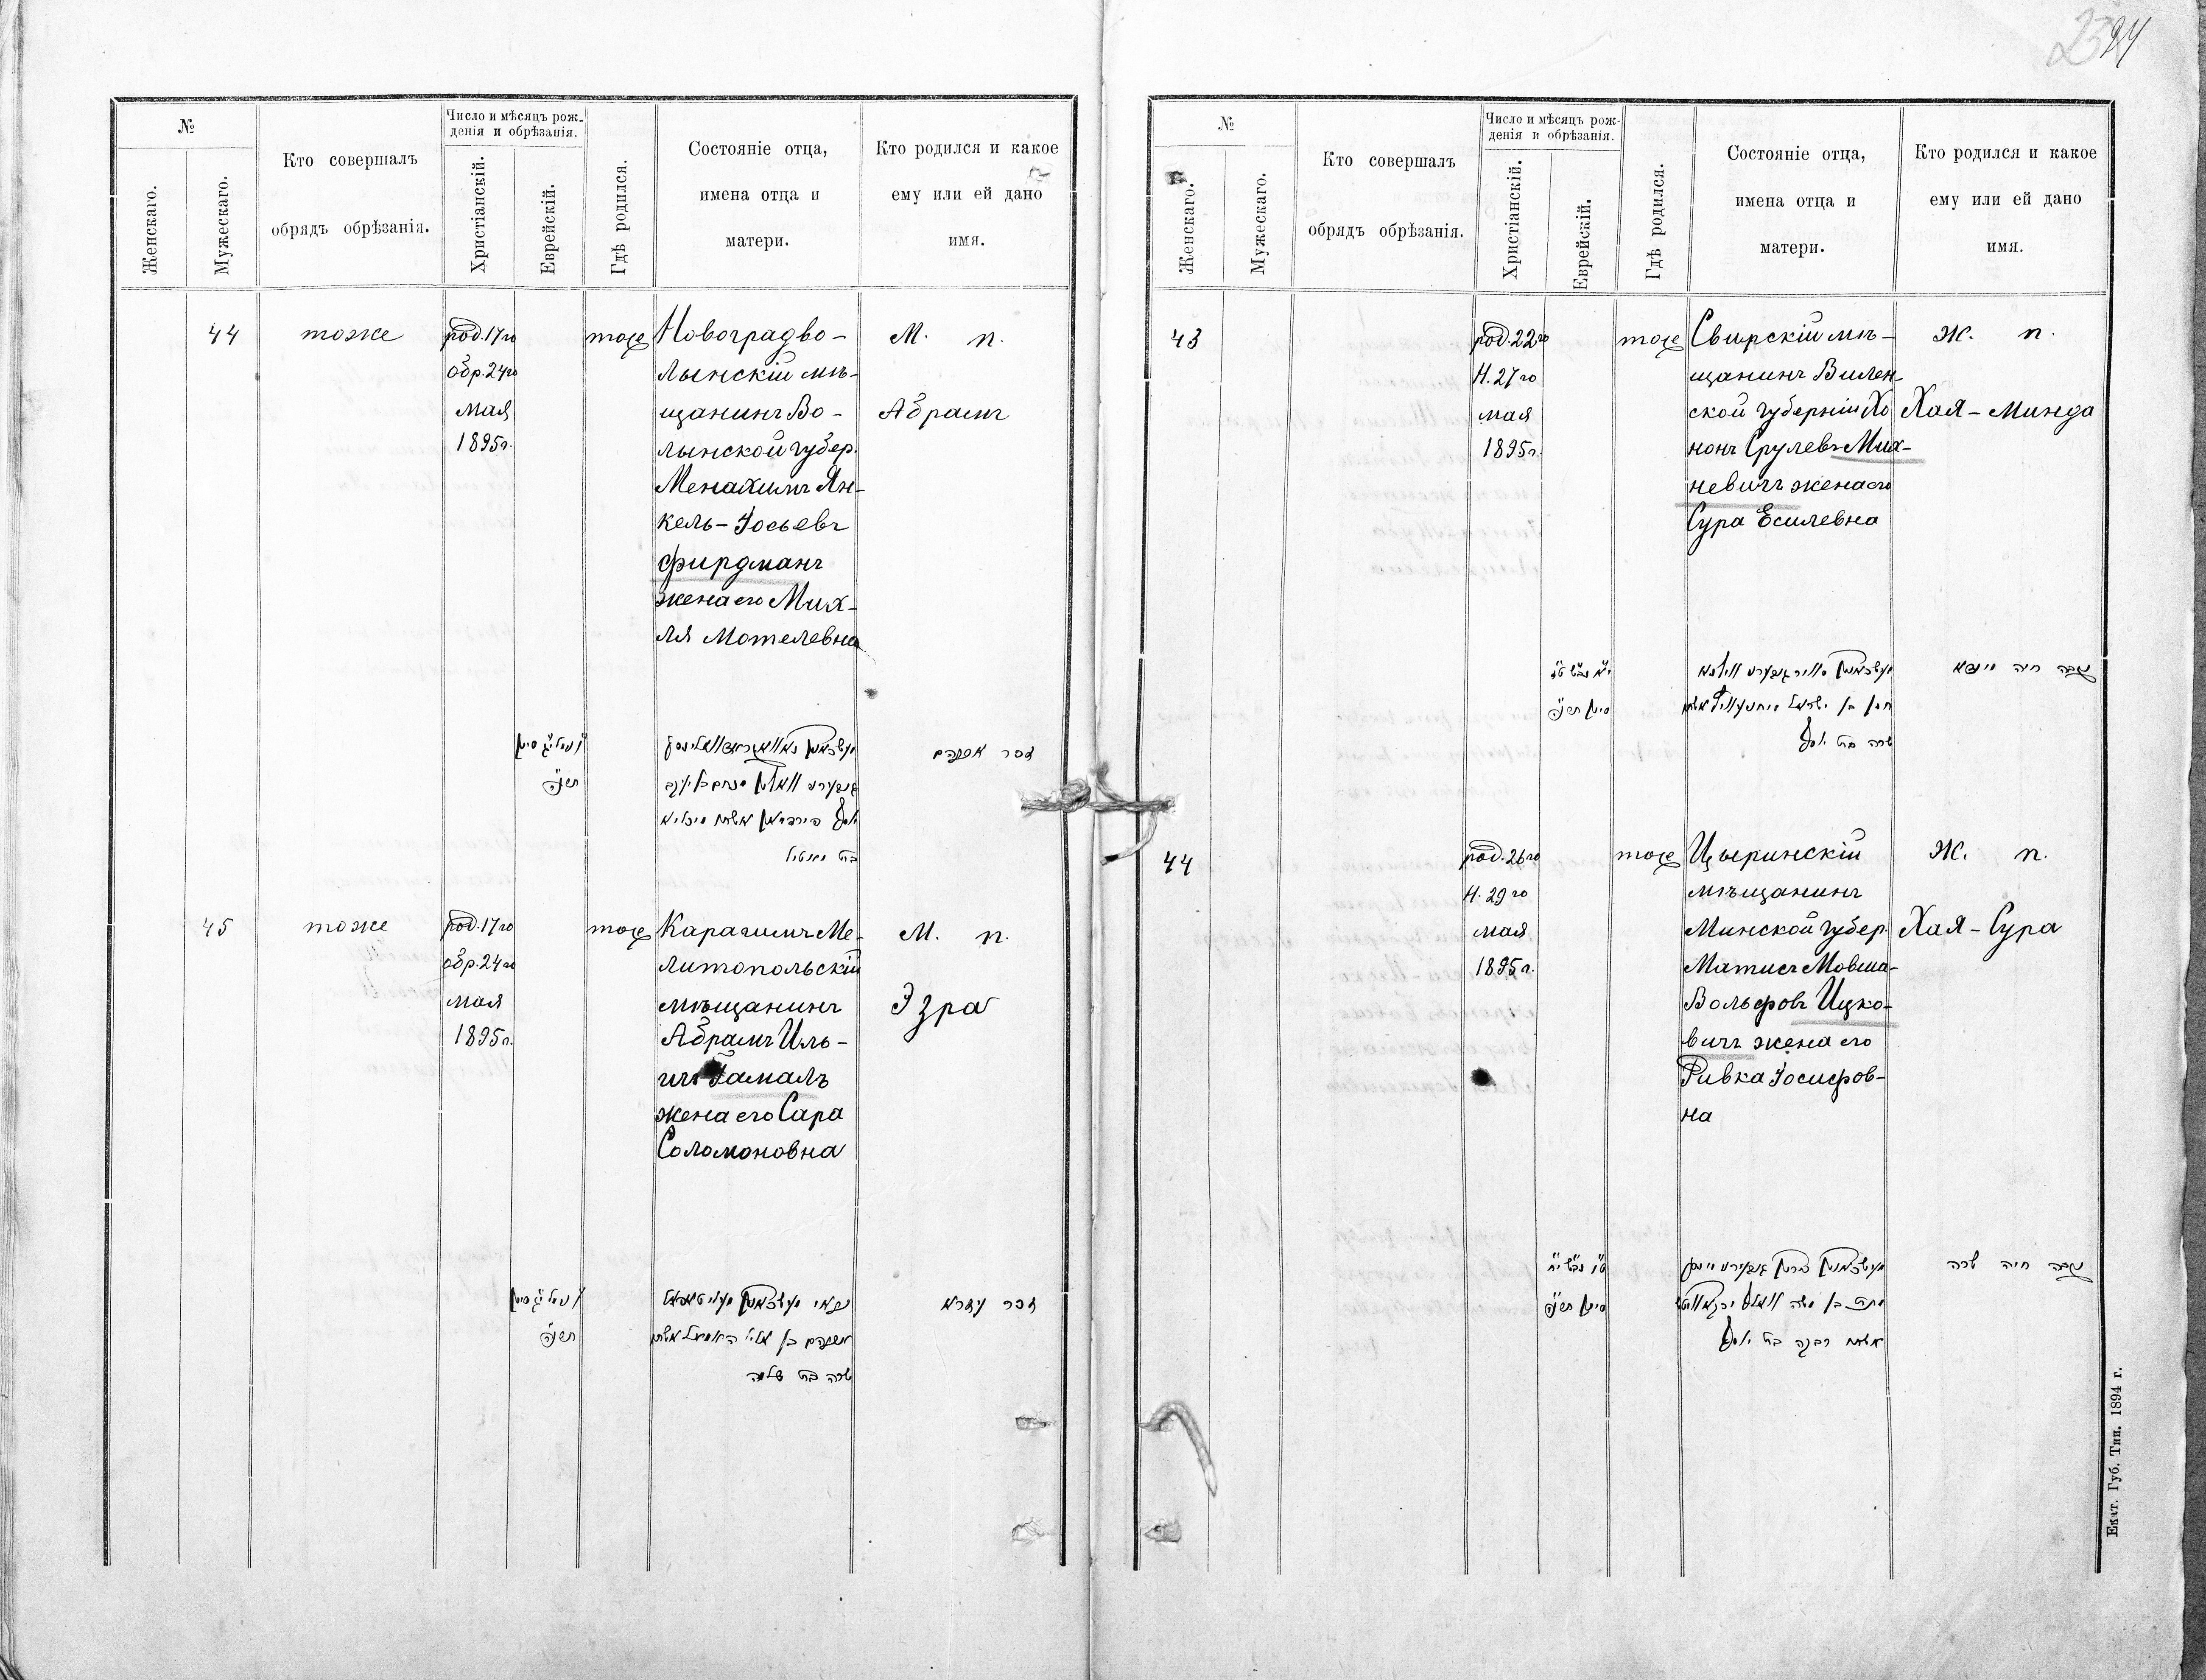 24
№
Женскаго.
Мужескаго.
Кто совершалъ
обрядъ обрѣзанія.
Число и мѣсяцъ рож-
денія и обрѣзанія.
Христіанскій.
Еврейскій.
Гдѣ родился.
Состояніе отца,
имена отца и
матери.
Кто родился и какое
ему или ей дано
имя.
44
тоже
род. 17го
обр. 24го
мая
1895 г.
тоже
Новоградво-
лынскій мѣ-
щанинъ Во-
лынской губер.
Менахимъ Ян-
кель-Іосьевъ
Фирдманъ
жена его Мих-
ля Мотелевна
М. п.
Абрамъ
תרנ״ה
זכר אברהם
45
тоже
род. 17го
обр. 24го
мая
1895 г.
тоже
Караимъ Ме-
литопольскій
мѣщанинъ
Абрамъ Иль-
жена его Сара
Соломоновна
М. п.
Эзра
תרנ״ה
שרה בת שלמה
זכר עזרא
№
Женскаго.
Мужескаго.
Кто совершалъ
обрядъ обрѣзанія.
Число и мѣсяцъ рож-
денія и обрѣзанія.
Христіанскій.
Еврейскій.
Гдѣ родился.
Состояніе отца,
имена отца и
матери.
Кто родился и какое
ему или ей дано
имя.
43
род. 22го
Н. 27го
мая
1895 г.
тоже
Свирскій мѣ-
щанинъ Вилен-
ской губерніи Хо
нонъ Срулевъ Мих-
невичъ жена его
Сура Есилевна
Ж. п.
Хая-Минда
סיון תרנ״ה
שרה בת יוסף
נקבה חיה מינדא
44
род. 26го
Н. 29го
мая
1895 г.
тоже
Цыринскій
мѣщанинъ
Минской губер.
Матисъ Мовша-
Вольфовъ Ицко-
вичъ жена его
Ривка Іосифов-
на
Ж. п.
Хая-Сура
סיון תרנ״ה
אשתו רבקה בת יוסף
נקבה חיה שרה
Екат. Губ. Тип. 1894 г.